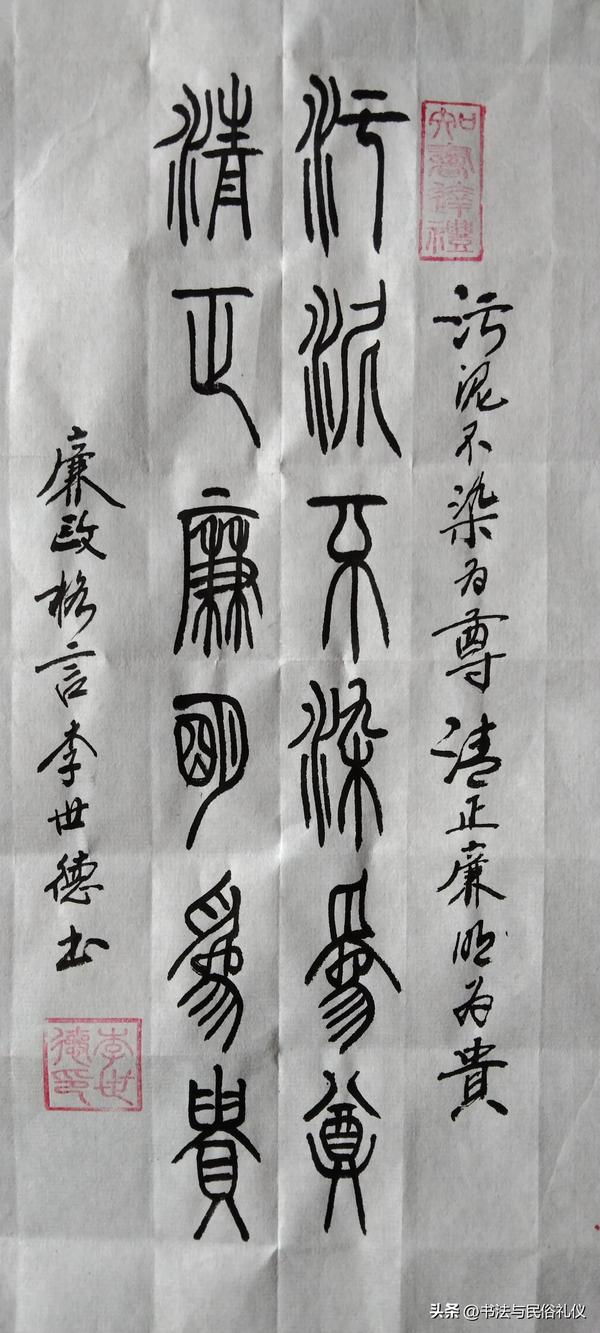 知書達禮
污泥不染为尊 清正廉明为貴
污泥不染爲尊
清正廉明爲貴
廉政格言李世德书
李世德印
头条 @书法与民俗礼仪